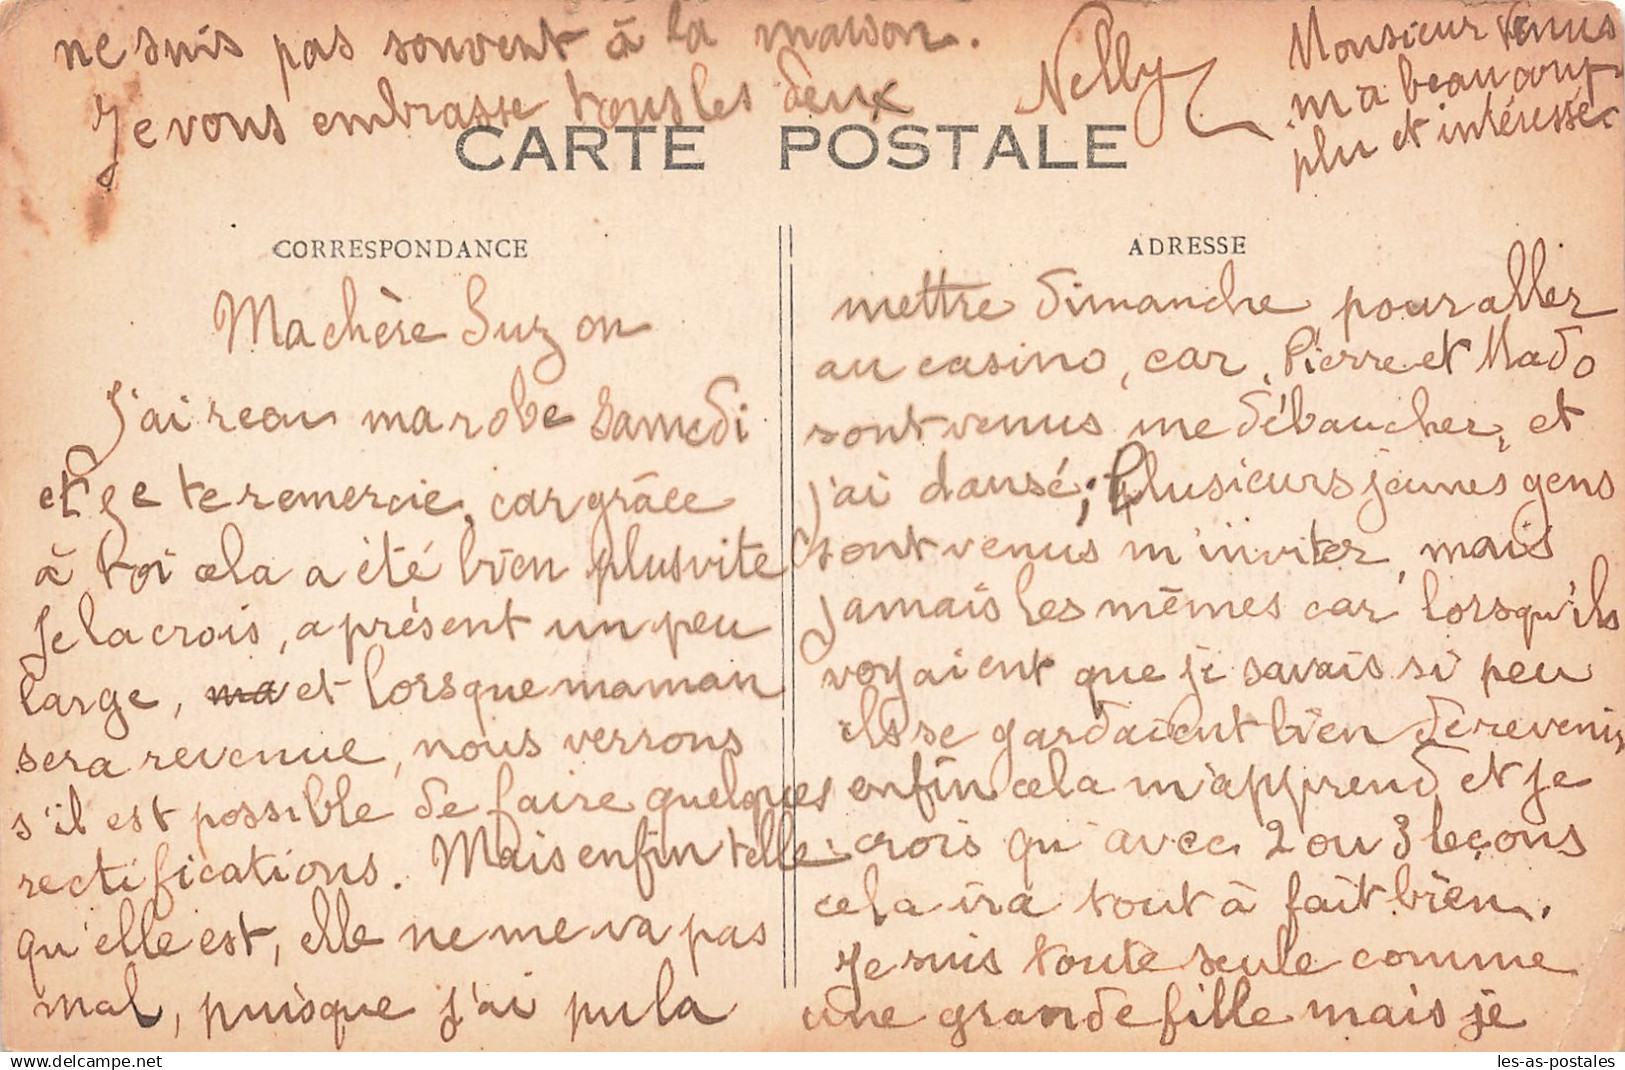 ne suis pas souvent à la maison.
Je vous embrasse tous les deux
Nelly
Monsieur Venus
m'a beaucoup
plu et intéressée
CARTE POSTALE
CORRESPONDANCE
Ma chère Suzon
J'ai reçu ma robe Samedi
et je te remercie, car grâce
à toi cela a été bien plus vite
Je la crois, a présent un peu
large, ma et lorsque maman
sera revenue, nous verrons
s'il est possible de faire quelques
rectifications. Mais enfin telle
qu'elle est, elle ne me va pas
mal, puisque j'ai pu la
ADRESSE
mettre dimanche pour aller
au casino, car, Pierre et Mado
sont venus me débaucher, et
j'ai dansé; Plusieurs jeunes gens
sont venus m'inviter, mais
jamais les mêmes car lorsqu'ils
voyaient que je savais si peu
ils se gardaient bien de revenir
enfin cela m'apprend et je
crois qu'avec 2 ou 3 leçons
cela ira tout à fait bien.
Je suis toute seule comme
une grande fille mais je
les-as-postales